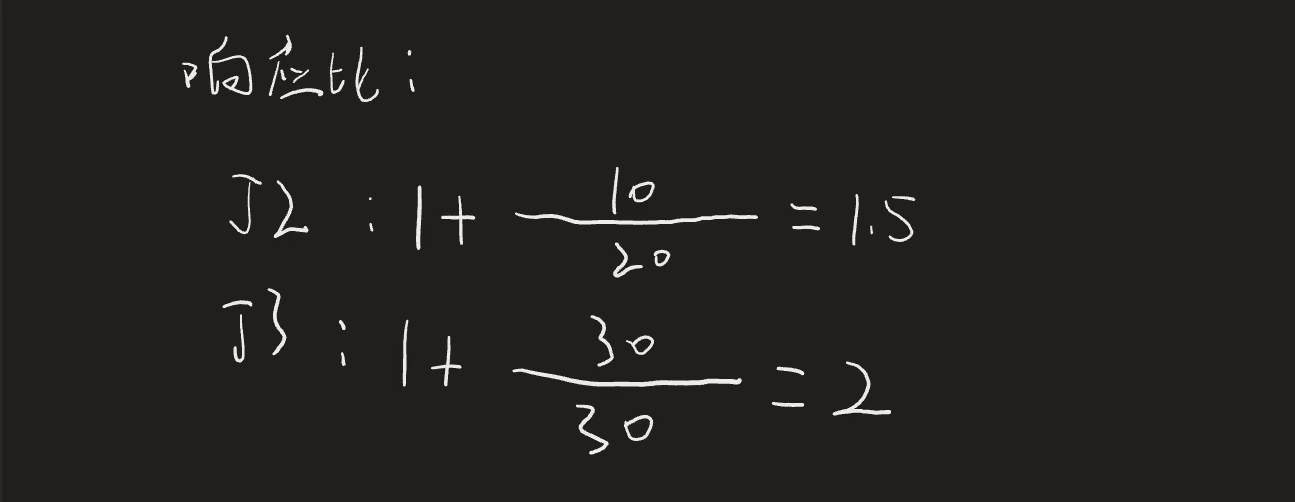 响应比:
J2 : 1 + 10/20 = 1.5
J3 : 1 + 30/30 = 2